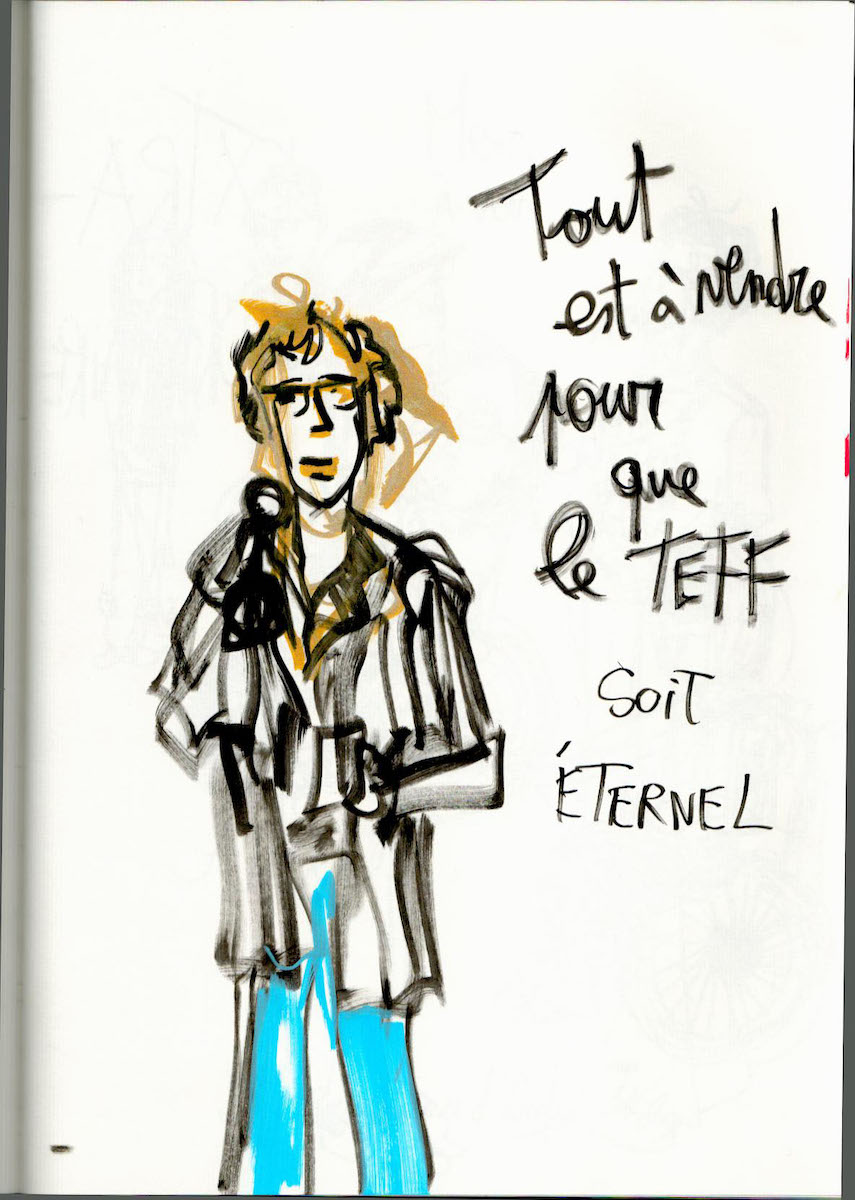 Tout
est à vendre
pour
que
le TEFF
SOIT
ÉTERNEL